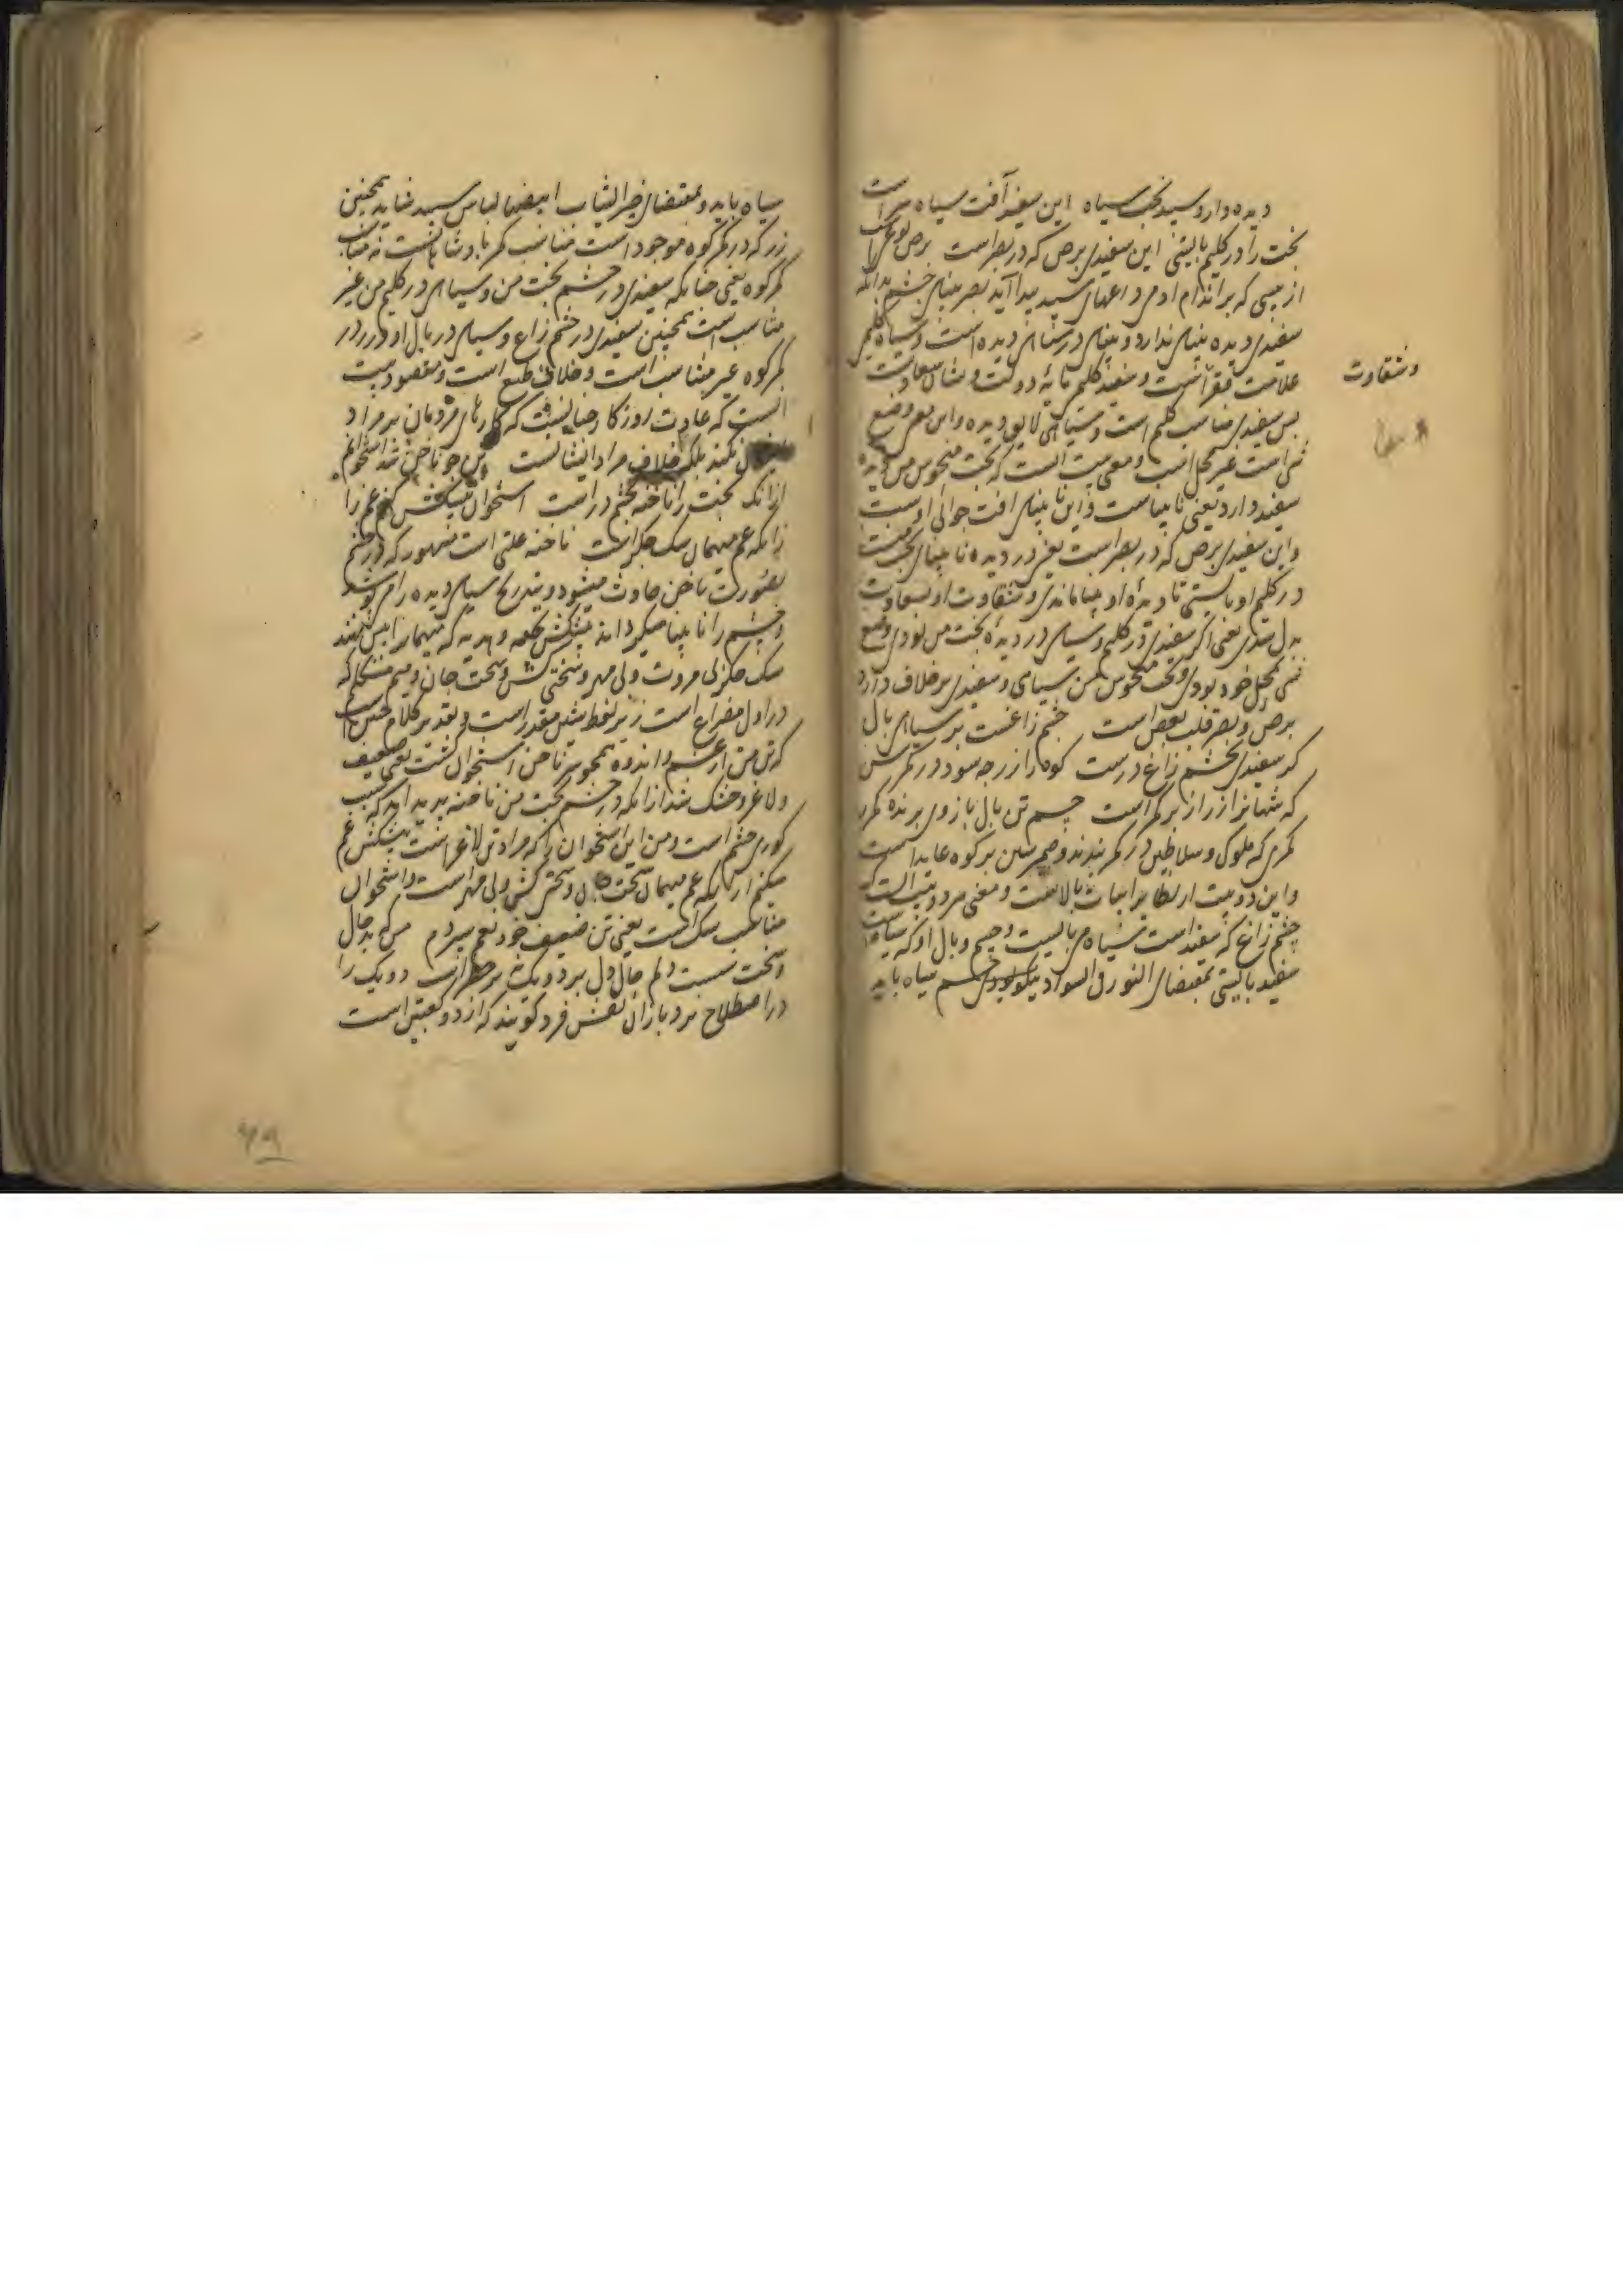 دیده دارد سپید بخت سیاه این سفید آفت سیاه سر است
بخت را در گلیم بایستی این سفیدی برص که در بصر است برص نوعیست
از پیسی که بر اندام آدمی داغهای سپید پیدا آید بصر بینای چشم بدانکه
سفیدی دیده بینای ندارد و بینای در سیاهی دیده است و سیاه گلیم
علامت فقر است و سفید گلیم مایه دولت و نشان سعادت
پس سفیدی مناسب گلیم است و سیاهی لایق دیده و این بصر وضع
شی است غیر محل است و معنی بیت آنست که بخت منحوس من دیده
سفید دارد یعنی نابیناست و این نابینای آفت جوانی اوست
و این سفیدی برص که در بصر است یعنی در دیده نابینای بخت منست
در گلیم او بایستی تا دیده او بینا ماندی و شقاوت او بسعادت
بدل شدی یعنی اگر سفیدی در گلیم و سیاهی در دیده بخت من بودی وضع
شی بمحل خود بودی و بخت منحوس من سیاهی و سفیدی بر خلاف دارد
برص و بصر قلب بعض است چشم زاغست بر سیاهی بال
گر سفیدی بچشم زاغ درست کوه را زر چه سود در کمرش
که شهانرا زر از بر کمر است چشم تن بال بازوی پرنده کمر
کمری که ملوک و سلاطین در کمر بندند و ضمیر شین بر کوه عاید است
و این دو بیت ارتباط بر ابیات بالاست و معنی هر دو بیت آنست که
چشم زاغ که سفید است سیاه می بایست و جسم و بال او که سیاه است
سفید بایستی بمقتضای النور فی السواد نیکو بودی چشم سیاه باید
و شقاوت
سیاه باید و بمقتضای خیر الثیاب ابیضها لباس سپید شاید همچنین
زر که در کمر کوه موجود است مناسب کمر پادشاهانست نه مناسب
کمر کوه یعنی چنانکه سفیدی در چشم بخت من و سیاهی در گلیم من غیر
مناسب است همچنین سفیدی در چشم زاغ و سیاهی در بال او و زر در
کمر کوه غیر مناسب است و خلاف طبع است و مقصود بیت
آنست که عادت روزگار چنانست که کارهای مردمان بر مراد
ایشان نکند بلکه خلاف مراد ایشانست تن چو ناخن شد استخوانم
ازانک بخت را ناخنه بچشم در است استخوان پیشکش کنم غم را
زانکه غم میهمان سگ جگر است ناخنه علتی است مشهور که در چشم
بصورت ناخن حادث میشود و بتدریج سیاهی دیده را می پوشد
و چشم را نابینا میگرداند پیشکش تحفه و هدیه که میهمان را پیش نهند
سگ جگر بی مروت و بی مهر و سختی کش و سخت جان و میم متکلم که
در اول مصراع است زیر لفظ مثل مقدر است و تقدیر کلام چنین است
که تن من از غم و اندوه همچو ناخن استخوان گشت یعنی ضعیف
و لاغر و خشک شد ازانکه در چشم بخت من ناخنه پدید آمد که سبب
کوری چشم است و من این استخوان را که مراد تن لاغر است پیشکش غم
میکنم ازانکه غم میهمان سخت دل و سختی کش و بی مهر است و استخوان
مناسب سگ است یعنی تن ضعیف خود بغم سپردم من که بد حال
و سخت سست دلم حال و دل هر دو یک بر خطر است دو یک را
در اصطلاح نرد بازان نقش فرد گویند که از دو کعبتین است